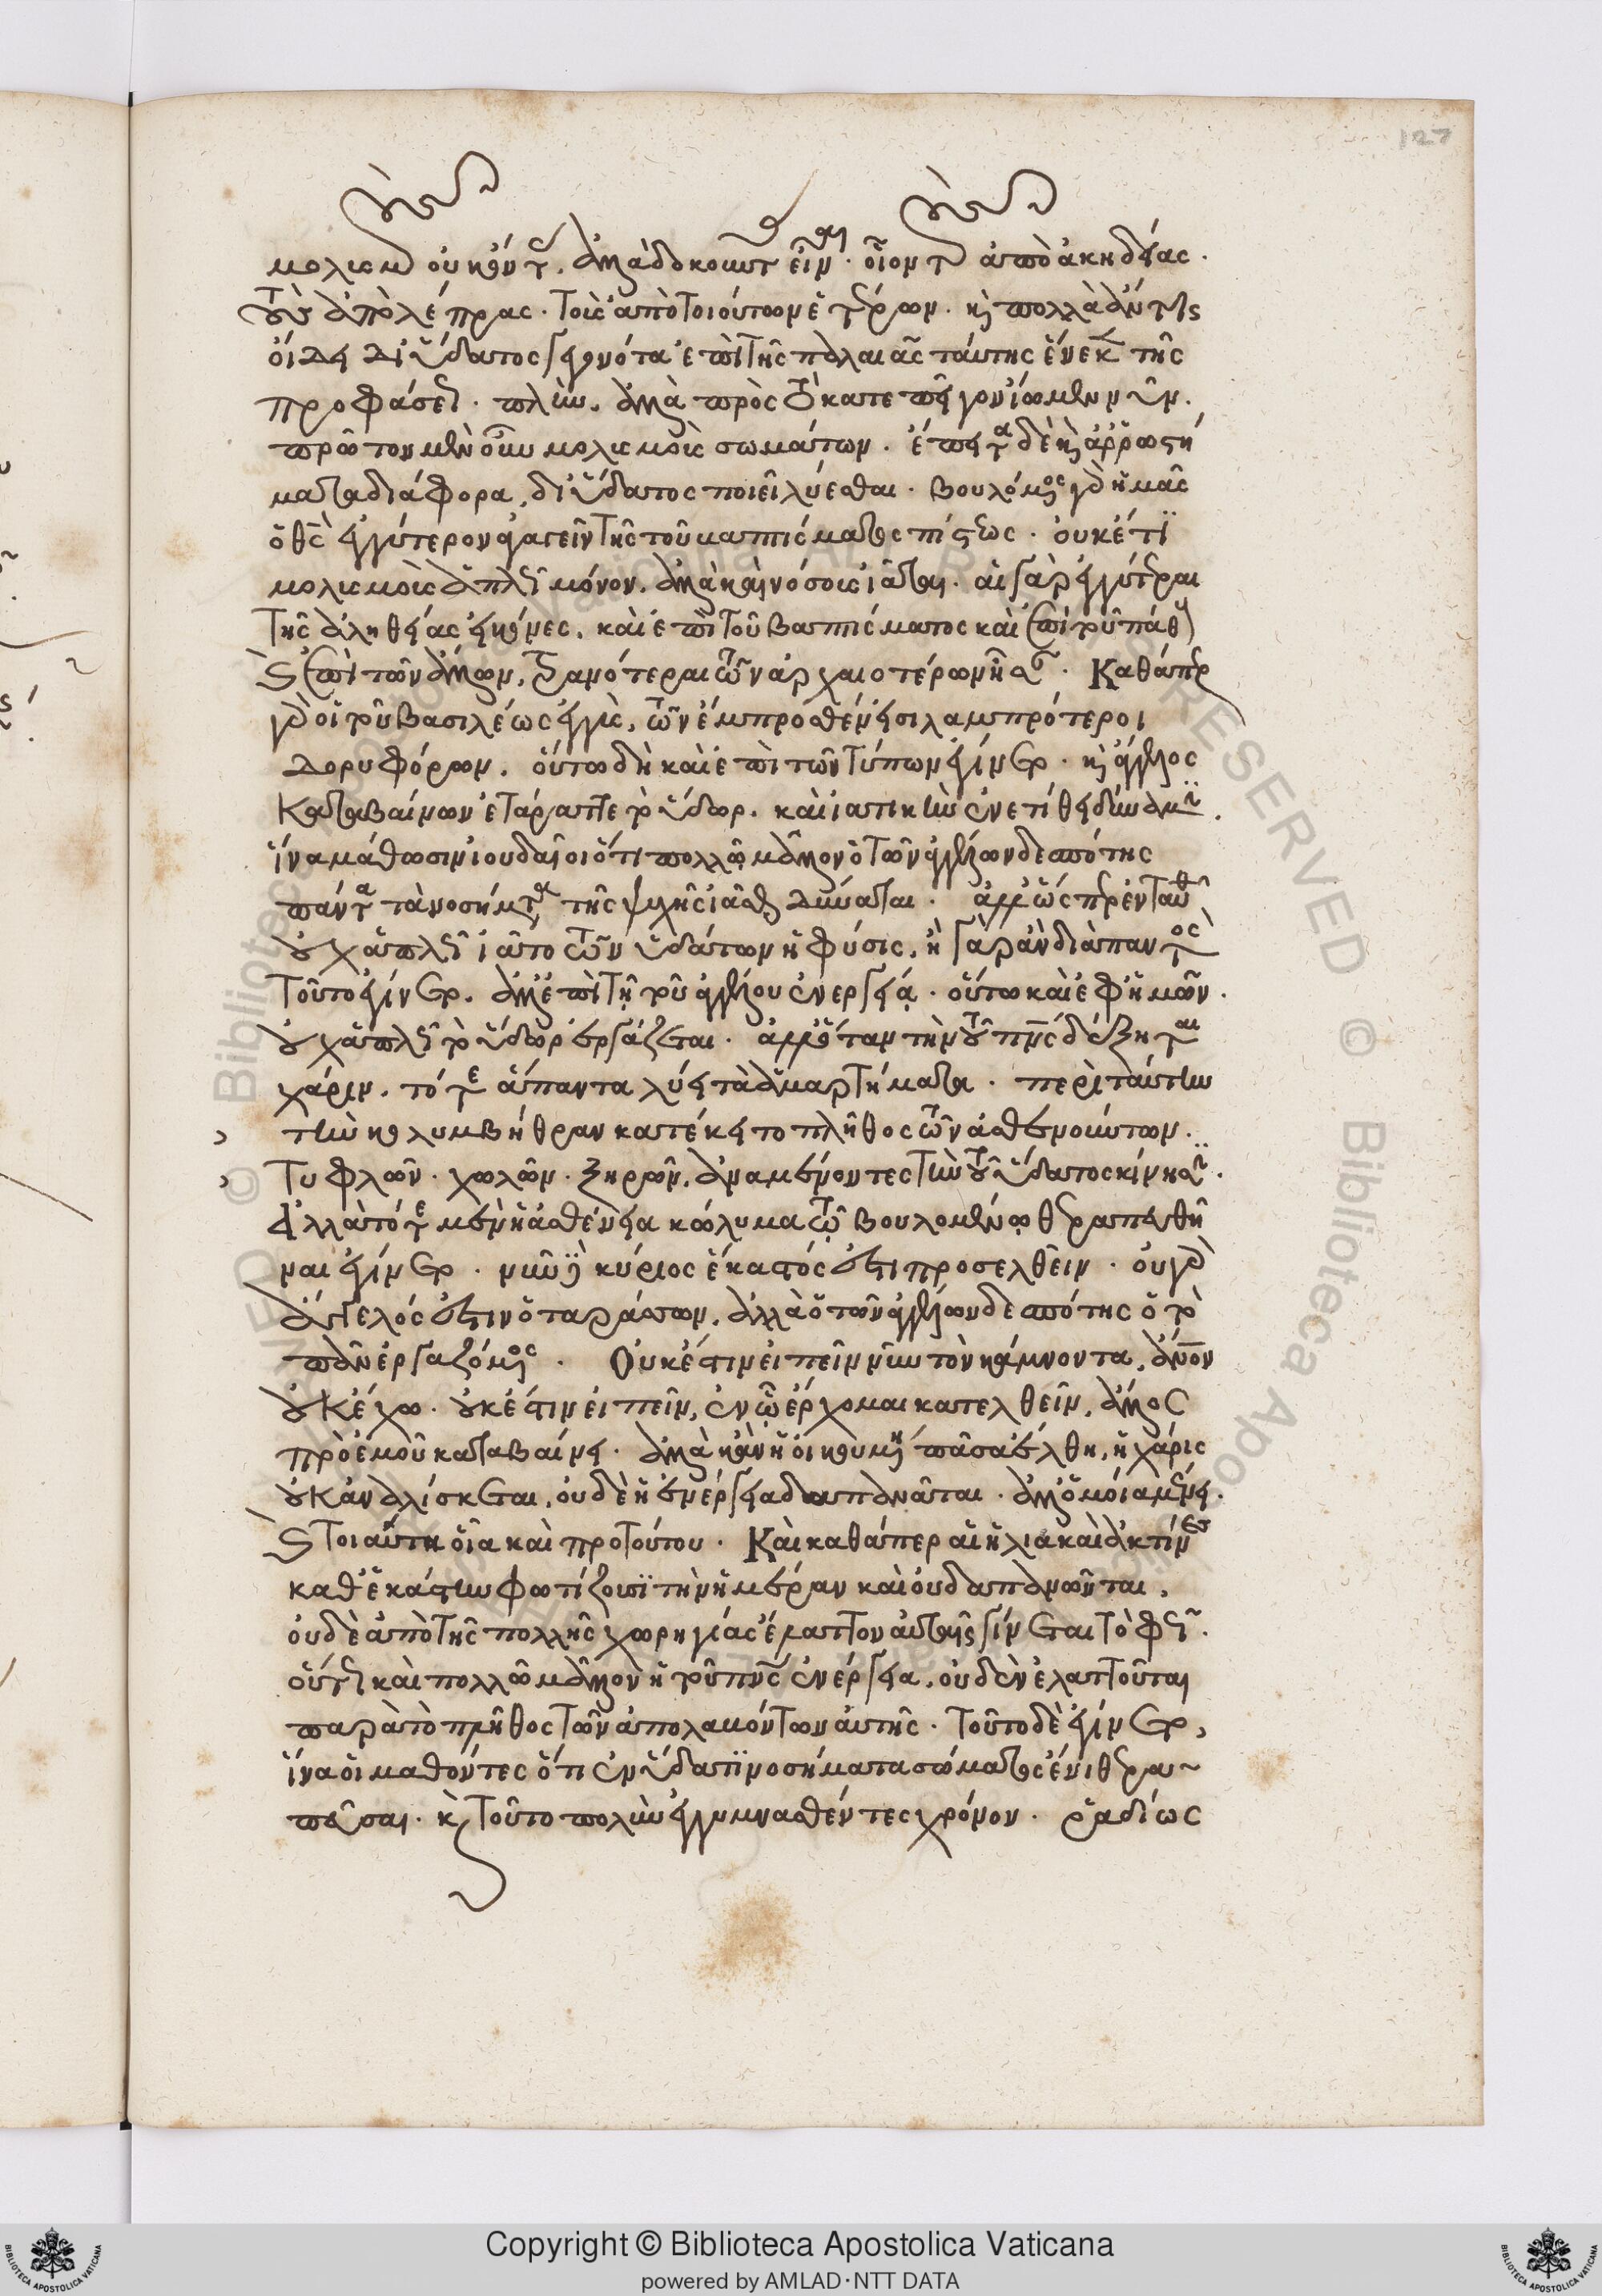 127
μολυσμοὺς οὐκ ὄντας. ἀλλὰ δοκοῦντας εἶναι. οἷον τοὺς ἀπὸ ἀκηδείας.
τοὺς ἀπὸ λέπρας. τοὺς ἀπὸ τοιούτων ἑτέρων. καὶ πολλὰ ἄν τις
ἴδῃ δι' ὕδατος γεγονότα ἐπὶ τῆς παλαιᾶς ταύτης ἕνεκεν τῆς
προφάσεως. πλὴν ἀλλὰ πρὸς τὸ κατεπεῖγον ἴωμεν νῦν.
πρῶτον μὲν οὖν μολυσμοὺς σωμάτων. ἔπειτα δὲ καὶ ἀρρωστή
ματα διάφορα δι' ὕδατος ποιεῖ λύεσθαι. βουλόμενος γὰρ ἡμᾶς
ὁ θεὸς ἐγγύτερον ἀγαγεῖν τῆς τοῦ βαπτίσματος πίστεως. οὐκέτι
μολυσμοὺς ἁπλῶς μόνον. ἀλλὰ καὶ νόσους ἰᾶται. αἱ γὰρ ἐγγύτεραι
τῆς ἀληθείας εἰκόνες. καὶ ἐπὶ τοῦ βαπτίσματος καὶ ἐπὶ τοῦ πάθους
καὶ ἐπὶ τῶν ἄλλων, τρανότεραι τῶν ἀρχαιοτέρων ἦσαν. Καθάπερ
γὰρ οἱ τοῦ βασιλέως ἐγγὺς, τῶν ἔμπροσθέν εἰσι λαμπρότεροι
δορυφόρων. οὕτω δὴ καὶ ἐπὶ τῶν τύπων ἐγίνετο. καὶ ἄγγελος
καταβαίνων ἐτάραττε τὸ ὕδωρ. καὶ ἰατικὴν ἐνετίθει δύναμιν.
ἵνα μάθωσιν ἰουδαῖοι ὅτι πολλῷ μᾶλλον ὁ τῶν ἀγγέλων δεσπότης
πάντα τὰ νοσήματα τῆς ψυχῆς ἰᾶσθαι δύναται. ἀλλ' ὥσπερ ἐνταῦθα
οὐχ ἁπλῶς ἰᾶτο τῶν ὑδάτων ἡ φύσις. ἢ γὰρ ἂν διαπαντὸς
τοῦτο ἐγίνετο. ἀλλ' ἐπὶ τῇ τοῦ ἀγγέλου ἐνεργείᾳ. οὕτω καὶ ἐφ' ἡμῶν.
οὐχ ἁπλῶς τὸ ὕδωρ ἐργάζεται. ἀλλ' ὅταν τὴν τοῦ πνς δέξηται
χάριν. τότε ἅπαντα λύει τὰ ἁμαρτήματα. περὶ ταύτην
τὴν κολυμβήθραν κατέκειτο πλῆθος τῶν ἀσθενούντων.
τυφλῶν. χωλῶν. ξηρῶν. ἀναμένοντες τὴν τοῦ ὕδατος κίνησιν.
Ἀλλὰ τότε μὲν ἡ ἀσθένεια κώλυμα τῷ βουλομένῳ θεραπευθῆ
ναι ἐγίνετο. νυνὶ δὲ κύριος ἕκαστός ἐστι προσελθεῖν. οὐ γὰρ
ἄγγελός ἐστιν ὁ ταράττων. ἀλλὰ ὁ τῶν ἀγγέλων δεσπότης ὁ τὸ
πᾶν ἐργαζόμενος. Οὐκ ἔστιν εἰπεῖν νῦν τὸν κάμνοντα, ἄνον
οὐκ ἔχω. οὐκ ἔστιν εἰπεῖν, ἐν ᾧ ἔρχομαι κατελθεῖν, ἄλλος
πρὸ ἐμοῦ καταβαίνει. ἀλλὰ κἂν ἡ οἰκουμένη πᾶσα ἔλθῃ, ἡ χάρις
οὐκ ἀναλίσκεται. οὐδὲ ἡ ἐνέργεια δαπανᾶται. ἀλλ' ὁμοία μένει.
καὶ τοιαύτη οἵα καὶ πρὸ τούτου. Καὶ καθάπερ αἱ ἡλιακαὶ ἀκτῖνες
καθ' ἑκάστην φωτίζουσι τὴν ἡμέραν καὶ οὐ δαπανῶνται.
οὐδὲ ἀπὸ τῆς πολλῆς χορηγίας ἔλαττον αὐταῖς γίνεται τὸ φῶς.
οὕτως καὶ πολλῷ μᾶλλον ἡ τοῦ πνς ἐνέργεια. οὐδὲν ἐλαττοῦται
παρὰ τὸ πλῆθος τῶν ἀπολαυόντων αὐτῆς. τοῦτο δὲ ἐγίνετο,
ἵνα οἱ μαθόντες ὅτι ἐν ὕδατι νοσήματα σώματος ἔνι θερα
πεῦσαι. καὶ τοῦτο πολὺν ἐγγυμνασθέντες χρόνον. ῥαδίως
Copyright © Biblioteca Apostolica Vaticana
powered by AMLAD·NTT DATA